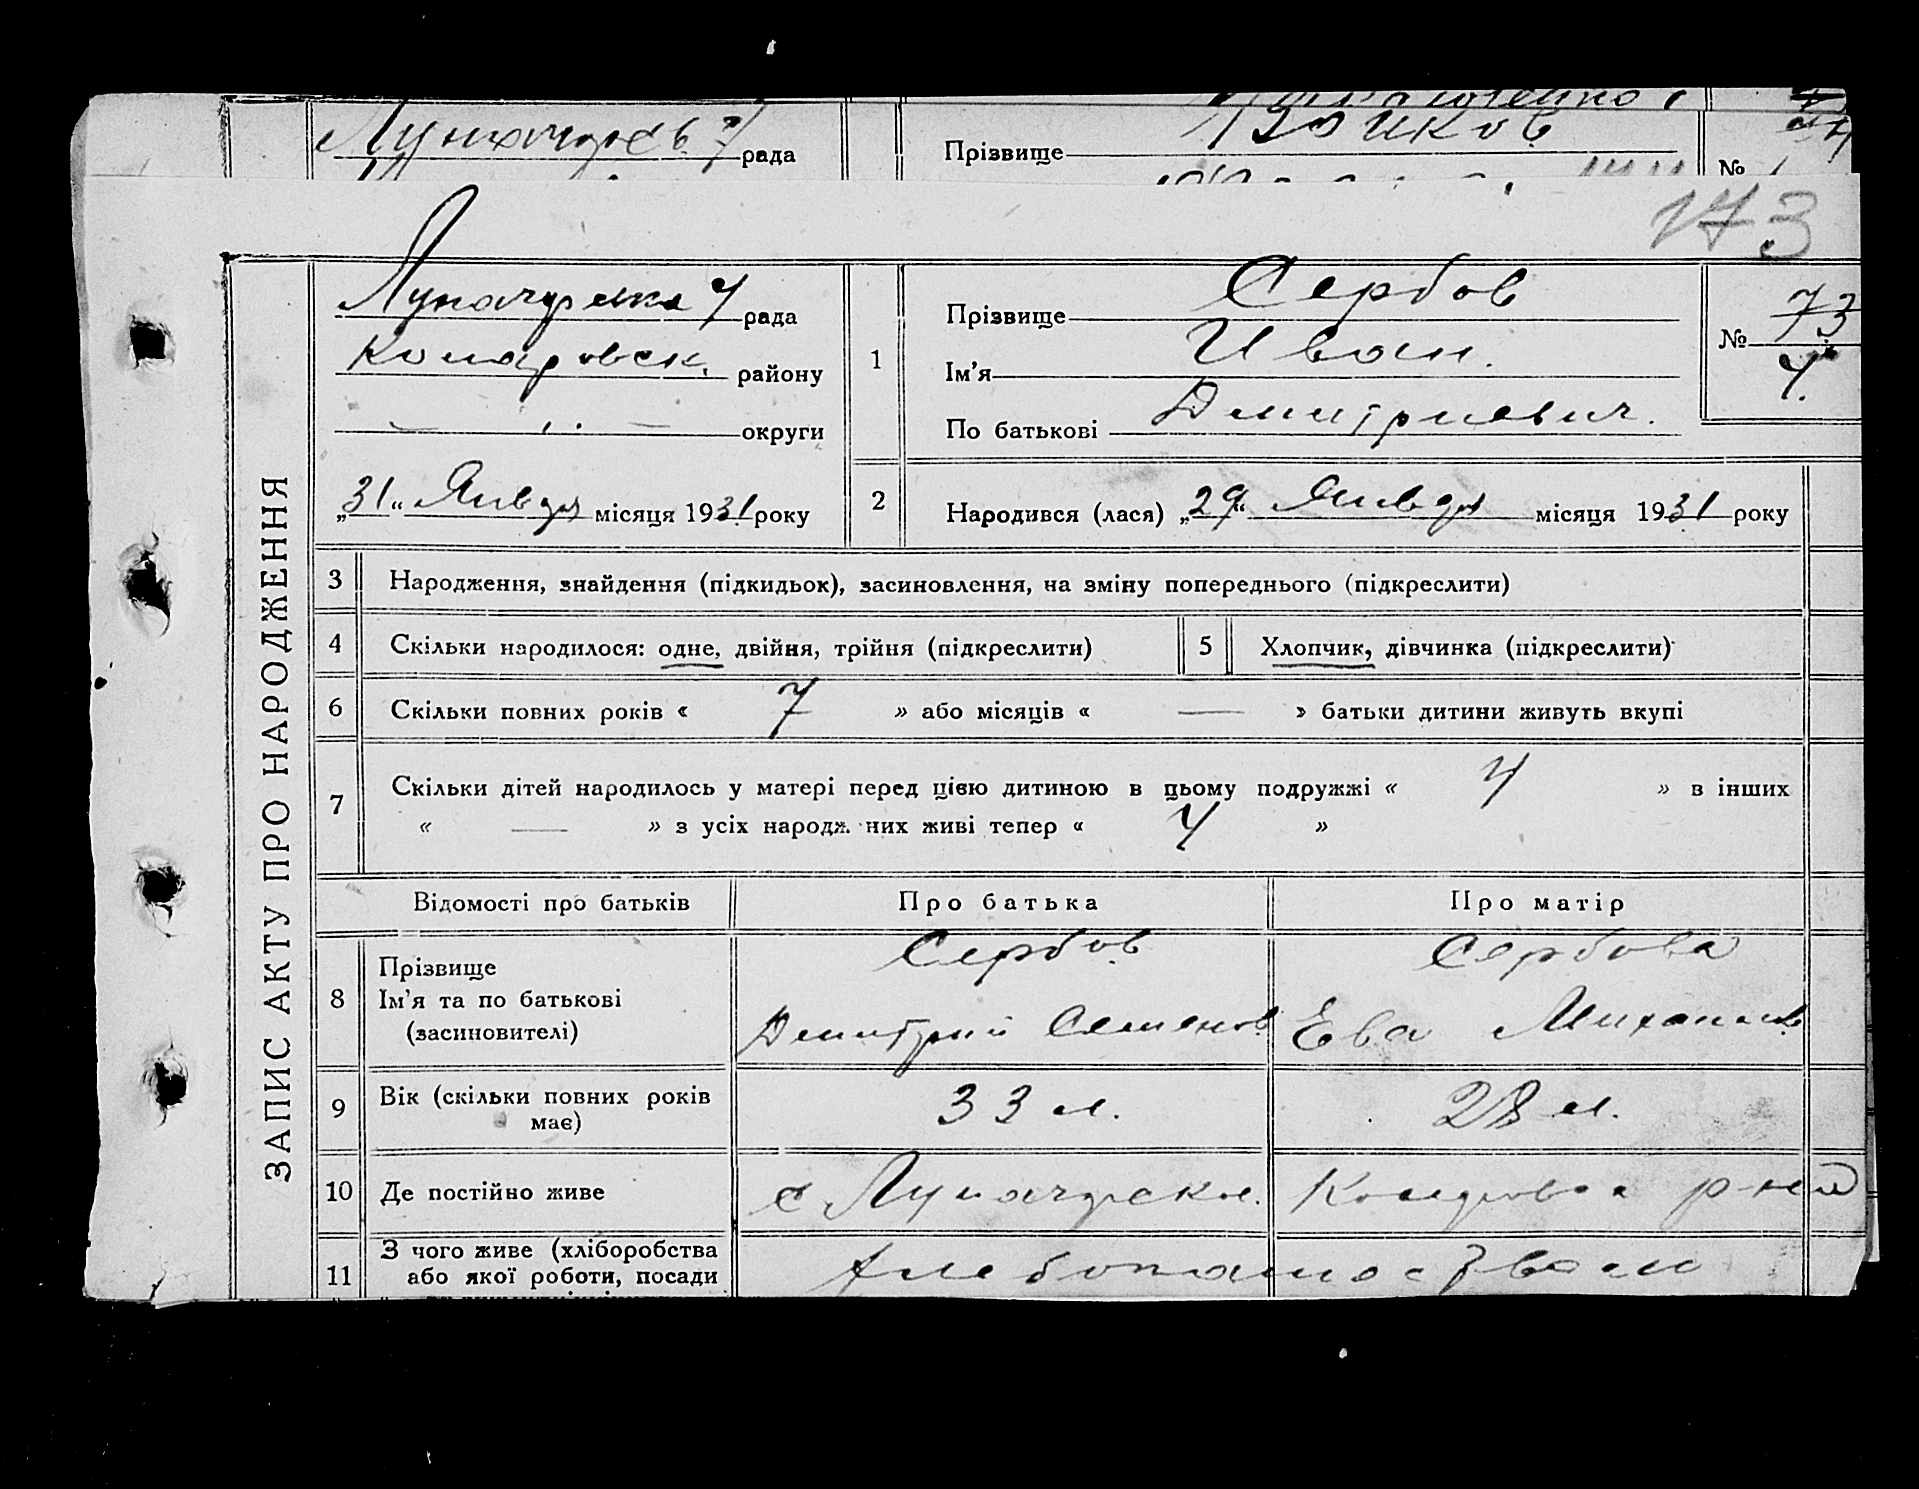 рада
Прізвище Воиков
№
173
ЗАПИС АКТУ ПРО НАРОДЖЕННЯ
рада
Комаровск. району
— „ — округи
„31“ Января місяця 1931 року
1
Прізвище Сербов
Ім'я Иван.
По батькові Дмитриевич.
№ 73
4.
2
Народився (лася) „29“ Января місяця 1931 року
3 Народження, знайдення (підкидьок), засиновлення, на зміну попереднього (підкреслити)
4 Скільки народилося: одне, двійня, трійня (підкреслити)
5 Хлопчик, дівчинка (підкреслити)
6 Скільки повних років « 7 » або місяців « — » батьки дитини живуть вкупі
7 Скільки дітей народилось у матері перед цією дитиною в цьому подружжі « 4 » в інших
« — » з усіх народж. них живі тепер « 4 »
Відомості про батьків Про батька Про матір
8 Прізвище
Ім'я та по батькові
(засиновителі)
Сербов
Дмитрий Семенов.
Сербова
Ева Михайлов.
9 Вік (скільки повних років
має)
33 л. 28 л.
10 Де постійно живе с Луначарска. Комаровск р-на
11 З чого живе (хліборобства
або якої роботи, посади
Хлебопашеством